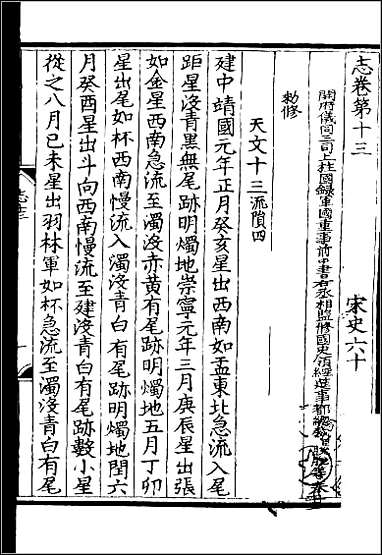 志卷第十三 宋史六十
開府儀同三司上柱國錄軍國重事前中書右丞相監修國史領經筵事都總裁臣脫脫等奉
勅修
天文十三流隕四
建中靖國元年正月癸亥星出西南如盂東北急流入尾
距星沒青黑無尾跡明燭地崇寧元年三月庚辰星出張
如金星西南急流至濁沒赤黃有尾跡明燭地五月丁卯
星出尾如杯西南慢流入濁沒青白有尾跡明燭地閏六
月癸酉星出斗向西南慢流至建沒青白有尾跡數小星
從之八月己未星出羽林軍如杯急流至濁沒青白有尾